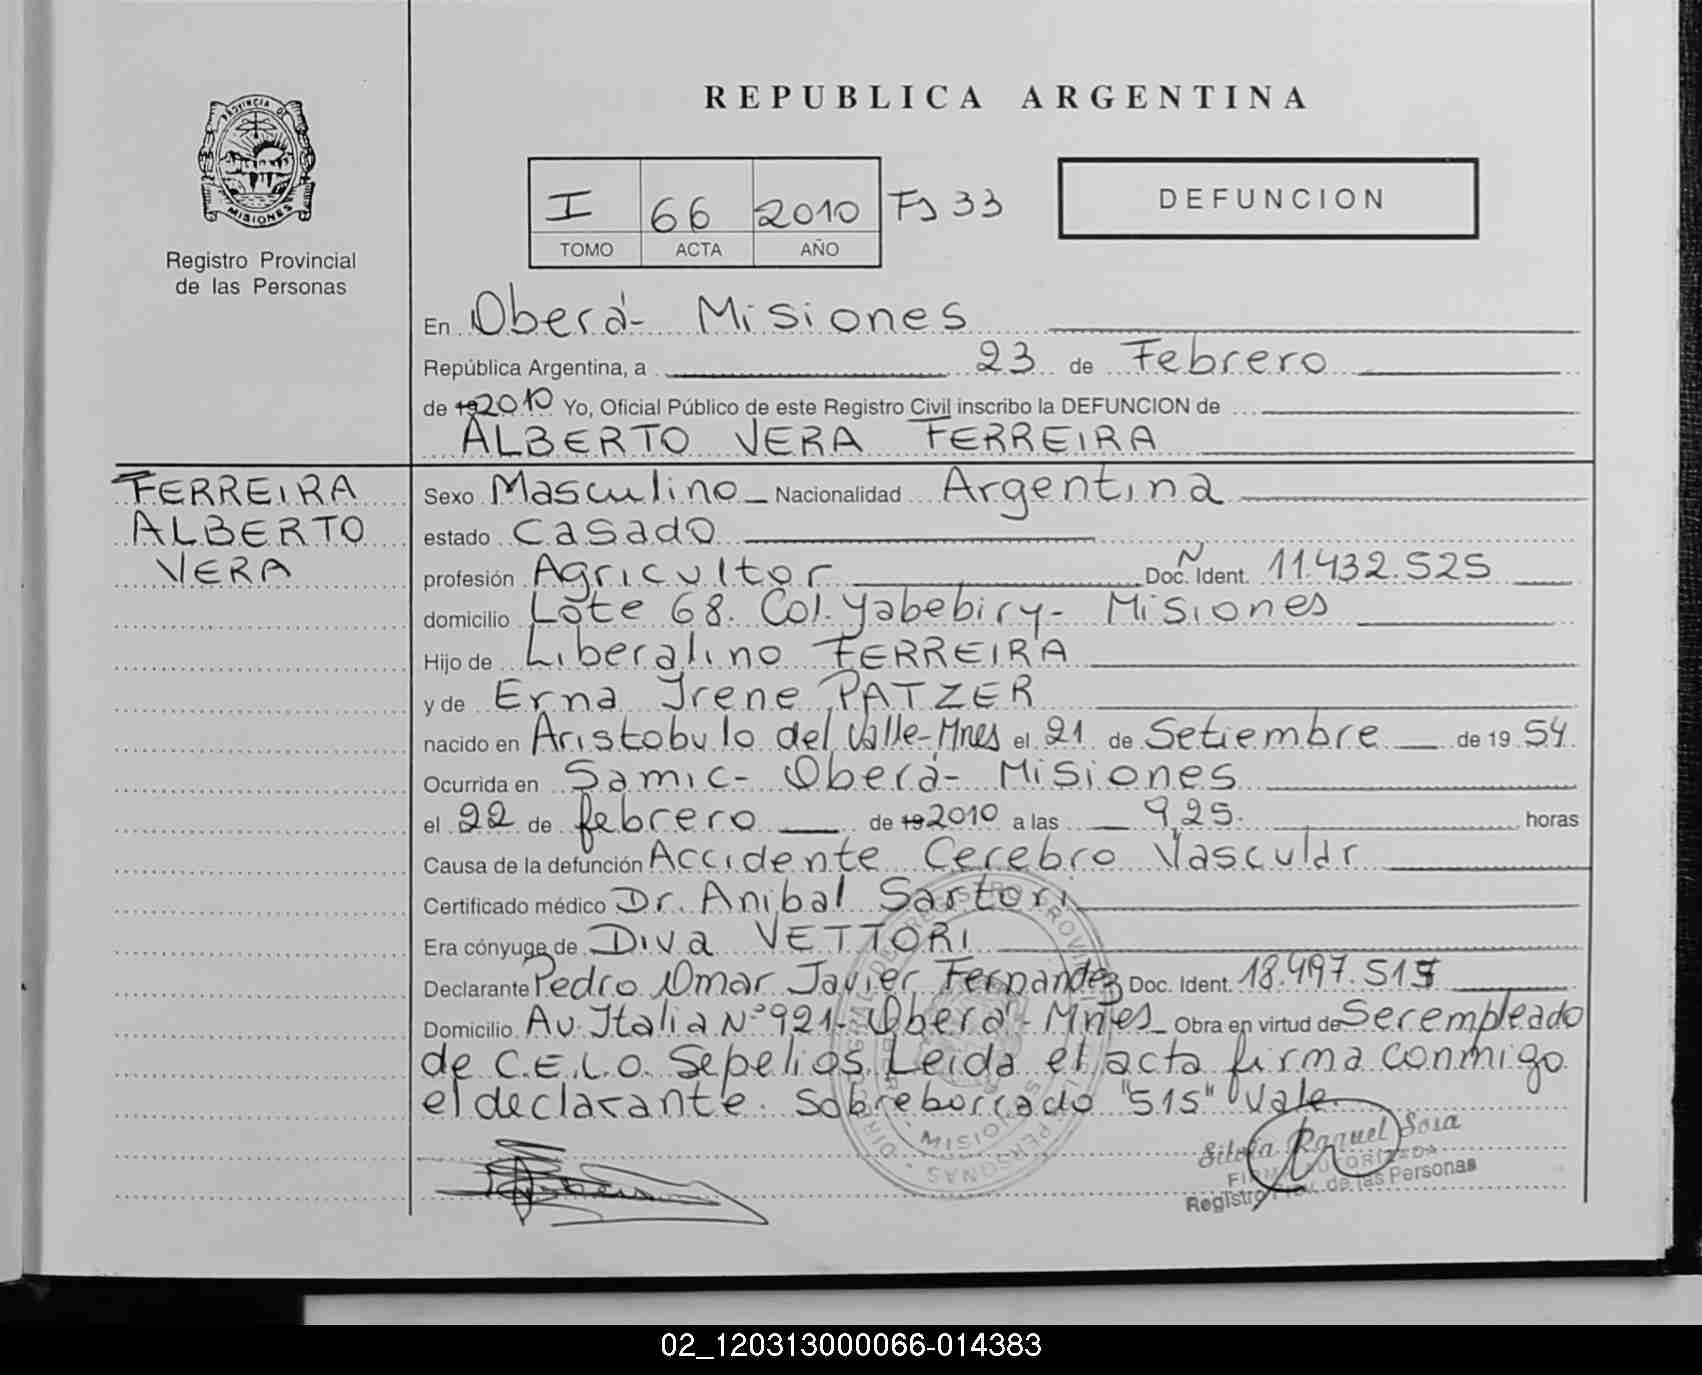 REPUBLICA ARGENTINA
PROVINCIA DE
MISIONES
Registro Provincial
de las Personas
I 66 2010 Fs 33
TOMO ACTA AÑO
DEFUNCION
En Oberá- Misiones
República Argentina, a 23 de Febrero
de 19 2010 Yo, Oficial Público de este Registro Civil inscribo la DEFUNCION de
ALBERTO VERA FERREIRA
FERREIRA
ALBERTO
VERA
Sexo Masculino Nacionalidad Argentina
estado Casado
profesión Agricultor Doc. N Ident. 11.432.525
domicilio Lote 68. Col. Yabebiry- Misiones
Hijo de Liberalino FERREIRA
y de Erna Irene PATZER
nacido en Aristobulo del Valle-Mnes el 21 de Setiembre de 19 54
Ocurrida en Samic- Oberá- Misiones
el 22 de febrero de 19 2010 a las 9,25. horas
Causa de la defunción Accidente Cerebro Vascular
Certificado médico Dr. Anibal Sartori
Era cónyuge de Diva VETTORI
Declarante Pedro Omar Javier Fernandez Doc. Ident. 18.497.515
Domicilio Av. Italia Nº 921- Oberá- Mnes Obra en virtud de Ser empleado
de C.E.L.O. Sepelios. Leida el acta firma conmigo
el declarante. Sobreborrado "515" Vale.
Silvia Raquel Sosa
FIRMA AUTORIZADA
Registro Prov. de las Personas
02_120313000066-014383